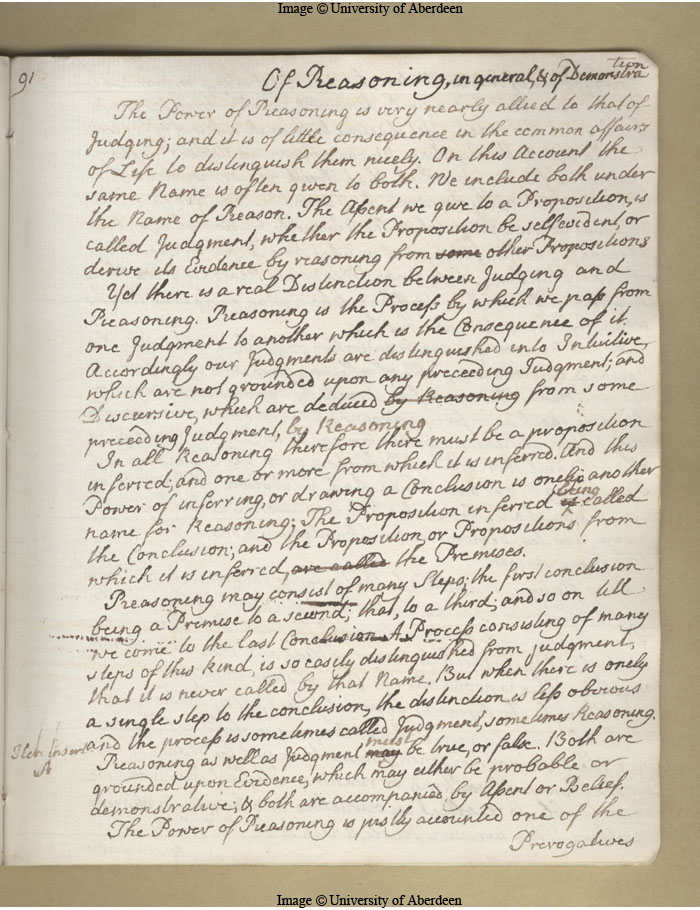 Image © University of Aberdeen
91
Of Reasoning, in general, & of Demonstration
The Power of Reasoning is very nearly allied to that of
Judging; and it is of little consequence in the common affairs
of Life to distinguish them nicely. On this Account the
same Name is often given to both. We include both under
the Name of Reason. The Assent we give to a Proposition, is
called Judgment, whether the Proposition be selfevident, or
derive its Evidence by reasoning from some other Propositions
Yet there is a real Distinction between Judging and
Reasoning. Reasoning is the Process by which we pass from
one Judgment to another which is the Consequence of it.
Accordingly our Judgments are distinguished into Intuitive,
which are not grounded upon any preceeding Judgment; and
Discursive, which are deduced by Reasoning from some
preceeding Judgment, by Reasoning
In all Reasoning therefore there must be a proposition
inferred, and one or more from which it is inferred. And this
Power of inferring, or drawing a Conclusion is onely another
name for Reasoning; The Proposition inferred is being called
the Conclusion; and the Proposition, or Propositions from
which it is inferred, are called the Premises.
Reasoning may consist of many Steps; the first conclusion
being a Premise to a second; that, to a third; and so on till
we come to the last Conclusion. A Process consisting of many
steps of this kind, is so easily distinguished from judgment,
that it is never called by that Name. But when there is onely
a single step to the conclusion, the distinction is less obvious
and the process is sometimes called Judgment, sometimes Reasoning.
Here insert
A
Reasoning as well as Judgment may must be true, or false. Both are
grounded upon Evidence, which may either be probable or
demonstrative; & both are accompanied by Assent or Belief.
The Power of Reasoning is justly accounted one of the
Prerogatives
Image © University of Aberdeen